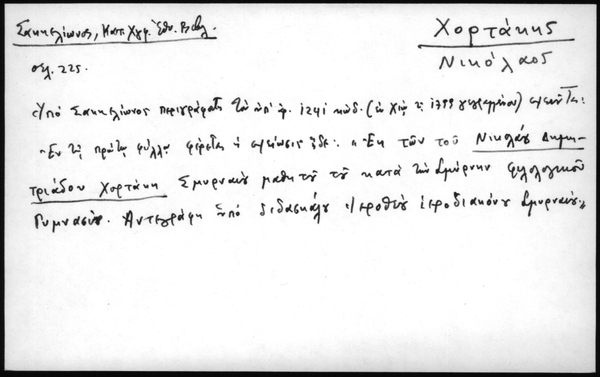 Σακκελίωνος, Κατ. Χγφ. Ἐθν. Βιβλ.
σελ. 225.
Χορτάκης
Νικόλαος
Ὑπό Σακκελίωνος περιγράφεται τῶν ὑπ' ἀρ. 1241 κώδ. (ἐν Χίῳ τῷ 1799 γεγραμμένου)
"Ἐν τῷ πρώτῳ φύλλῳ φέρεται ἡ σημείωσις ἥδε: "Ἐκ τῶν τοῦ Νικολάου Δημη-
τριάδου Χορτάκη Σμυρναίου μαθητοῦ τοῦ κατά τήν Σμύρνην φιλολογικοῦ
Γυμνασίου. Ἀντεγράφη ὑπό διδασκάλου Ἱεροθέου ἱεροδιακόνου Σμυρναίου"